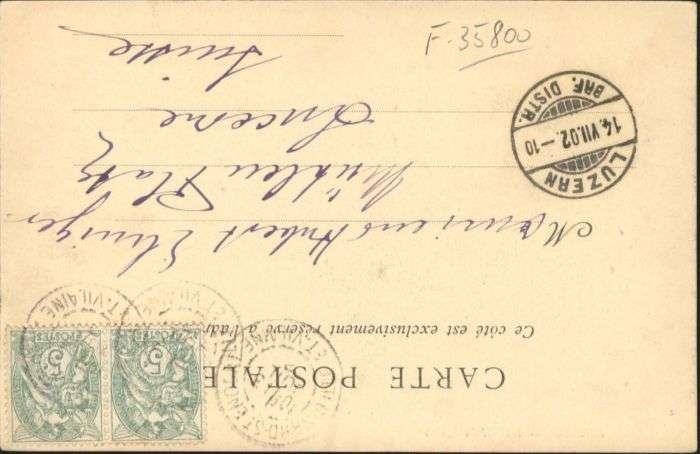 CARTE POSTALE
Ce côté est exclusivement réservé à l'adr
Monsieur Hubert Elmiger
Mühlen Platz
Lucerne
Suisse
F. 35800
LUZERN
14.VII.02.–10
BRF. DISTR.
POSTES
5
POSTES
5
ET-VILAINE
ET-VILAINE
ET-VILAINE